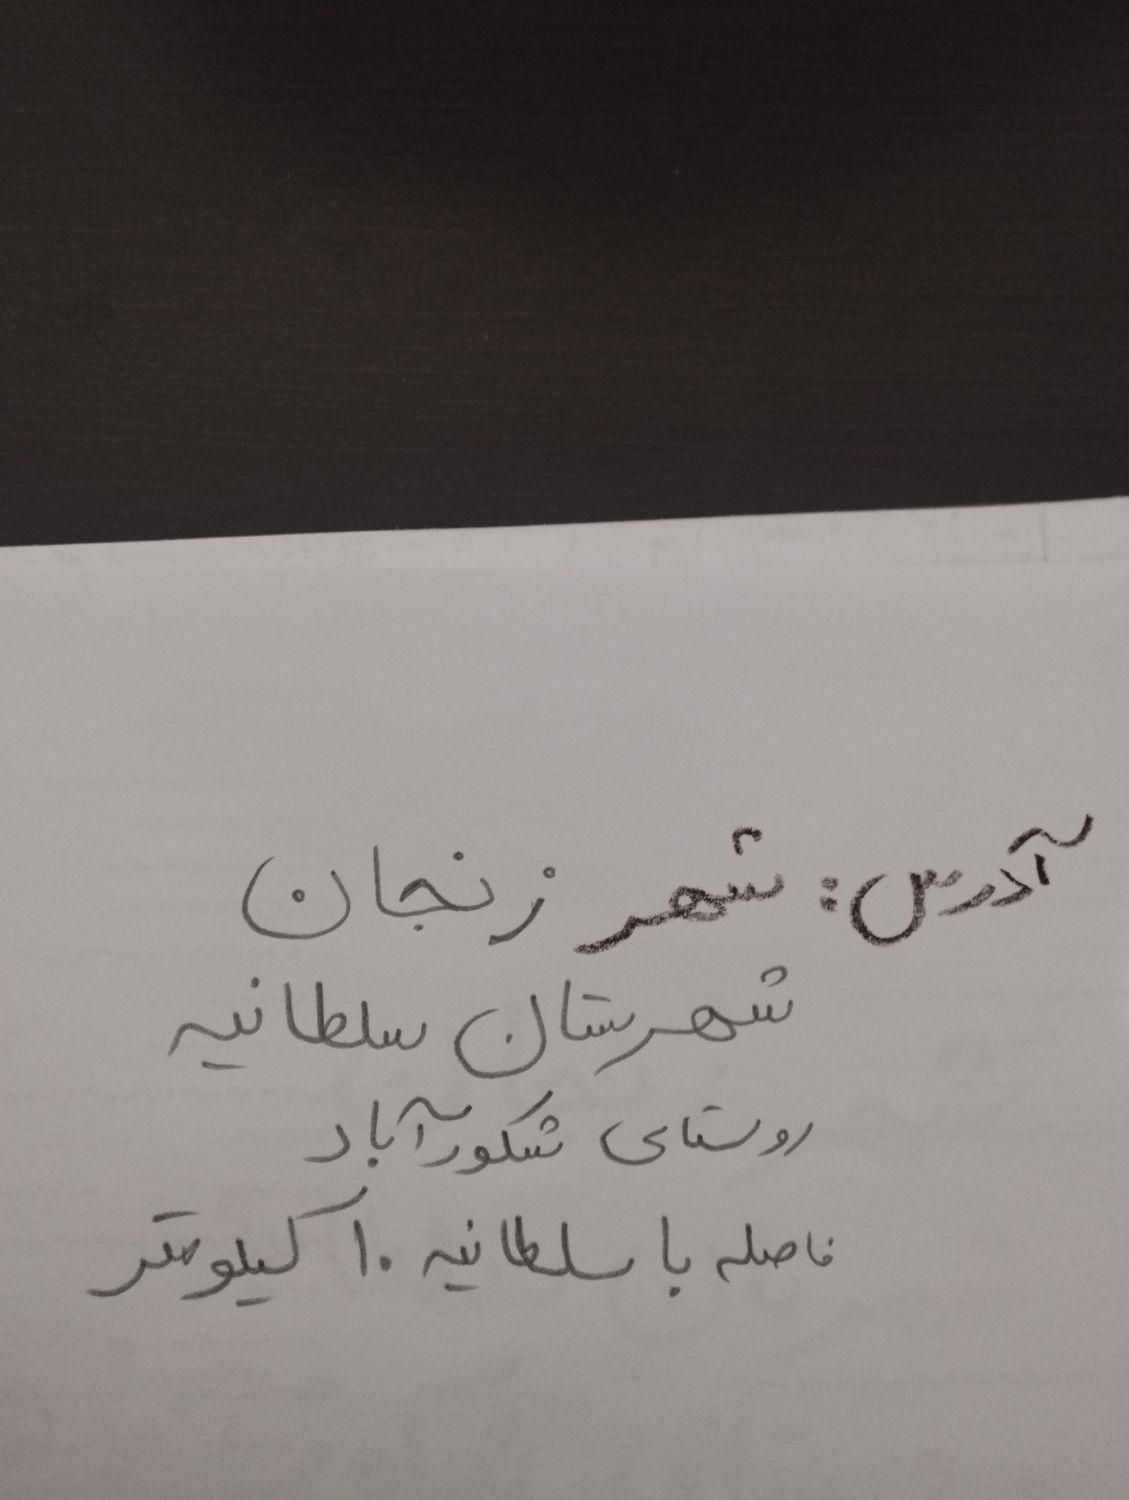 آدرس: شهر زنجان
شهرستان سلطانیه
روستای شکورآباد
فاصله با سلطانیه ۱۰ کیلومتر